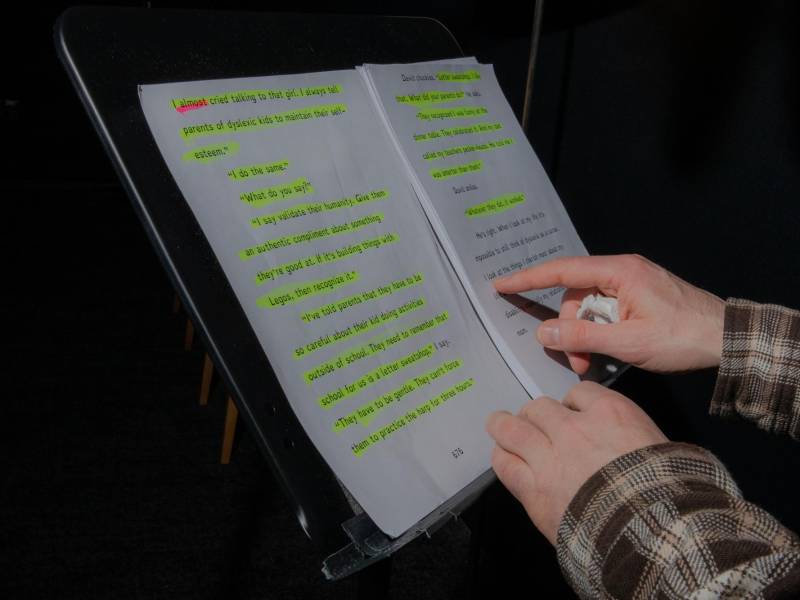 I almost cried talking to that girl. I always tell
parents of dyslexic kids to maintain their self-
esteem."
"I do the same."
"What do you say?"
"I say validate their humanity. Give them
an authentic compliment about something
they're good at. If it's building things with
Legos, then recognize it."
"I've told parents that they have to be
so careful about their kid doing activities
outside of school. They need to remember that
school for us is a letter sweatshop." I say.
"They have to be gentle. They can't force
them to practice the harp for three hours."
676
David chuckles. "Letter sweatshop. I like
that. What did your parents do?" He asks.
"They recognized I was funny at the
dinner table. They celebrated it. And my dad
called my teachers He told me I
was smarter than them."
David smiles.
"Whatever they did, it worked."
He's right. When I look at my life it's
impossible to still think of dyslexia as a curse.
I look at the things I cherish most about my
my
mom.